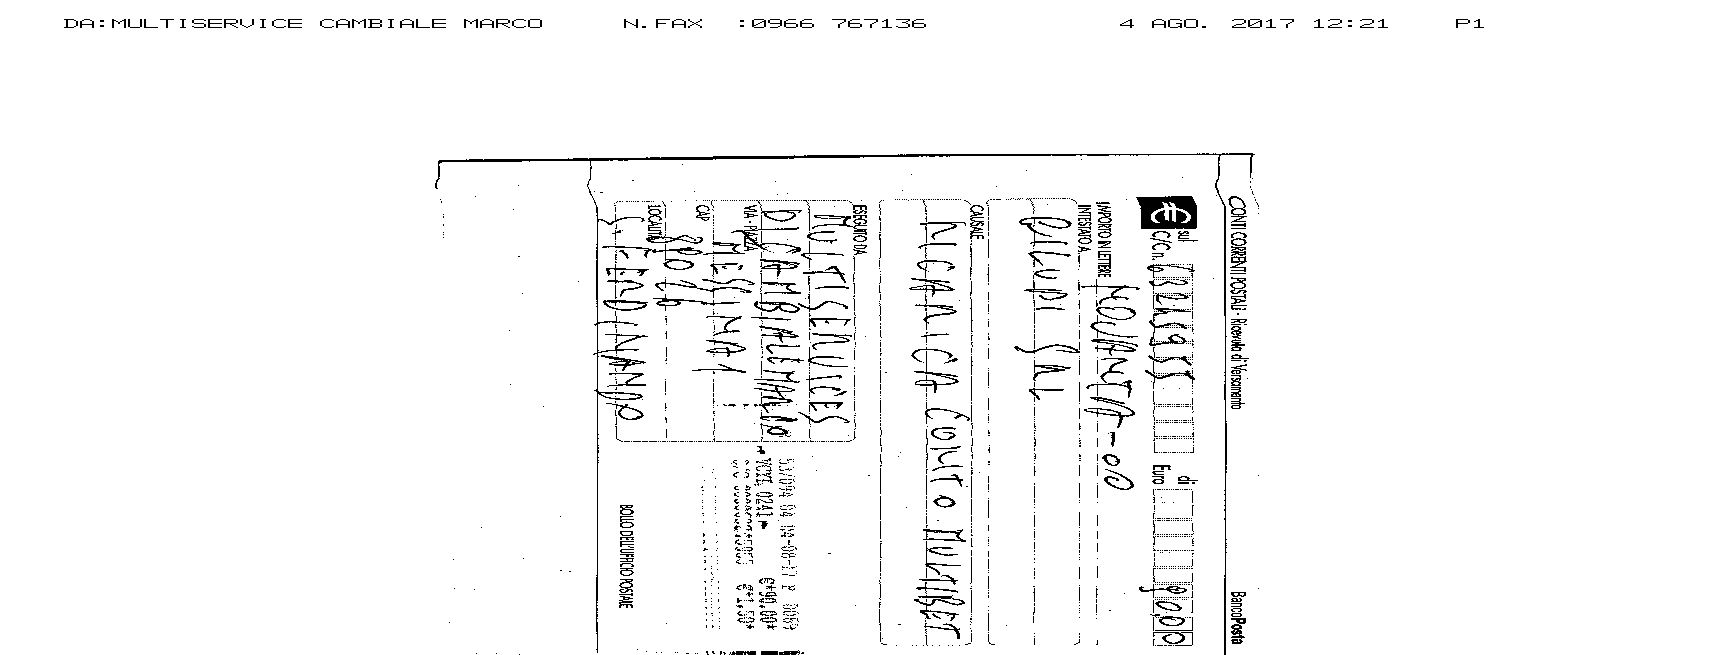 DA:MULTISERVICE CAMBIALE MARCO N.FAX :0966 767136 4 AGO. 2017 12:21 P1
CONTI CORRENTI POSTALI - Ricevuta di Versamento BancoPosta
€ sul C/C n. di Euro 90,00
IMPORTO IN LETTERE NOVANTA-00
INTESTATO A
CAUSALE
RICARICA CONTO MULTIBET
ESEGUITO DA
MULTISERVICES
DI CAMBIALE MARCO
VIA - PIAZZA
MESSINA 1
CAP
LOCALITÀ
S. FERDINANDO
04-08-17 P 0089
VCYL 0241 €*90,00*
€*1,50*
BOLLO DELL'UFFICIO POSTALE